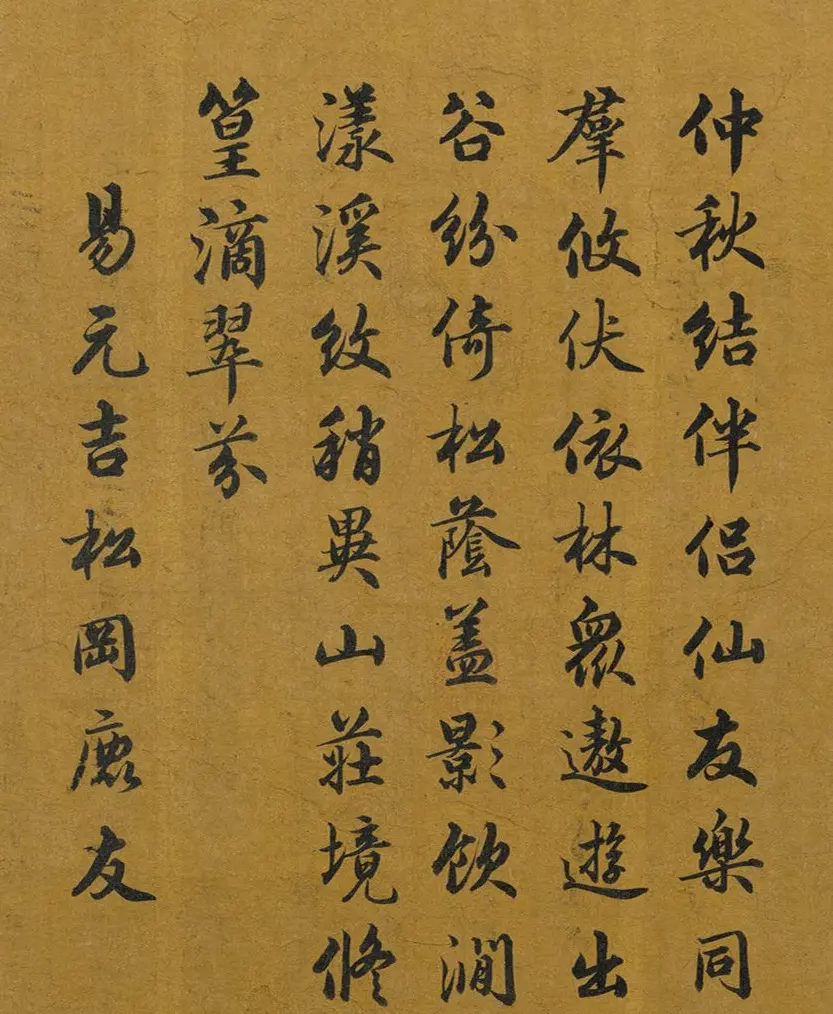 仲秋結伴侣仙友樂同
羣攸伏依林衆遨遊出
谷紛倚松蔭蓋影飲澗
漾溪紋稍異山莊境修
篁滴翠芬
易元吉松岡鹿友